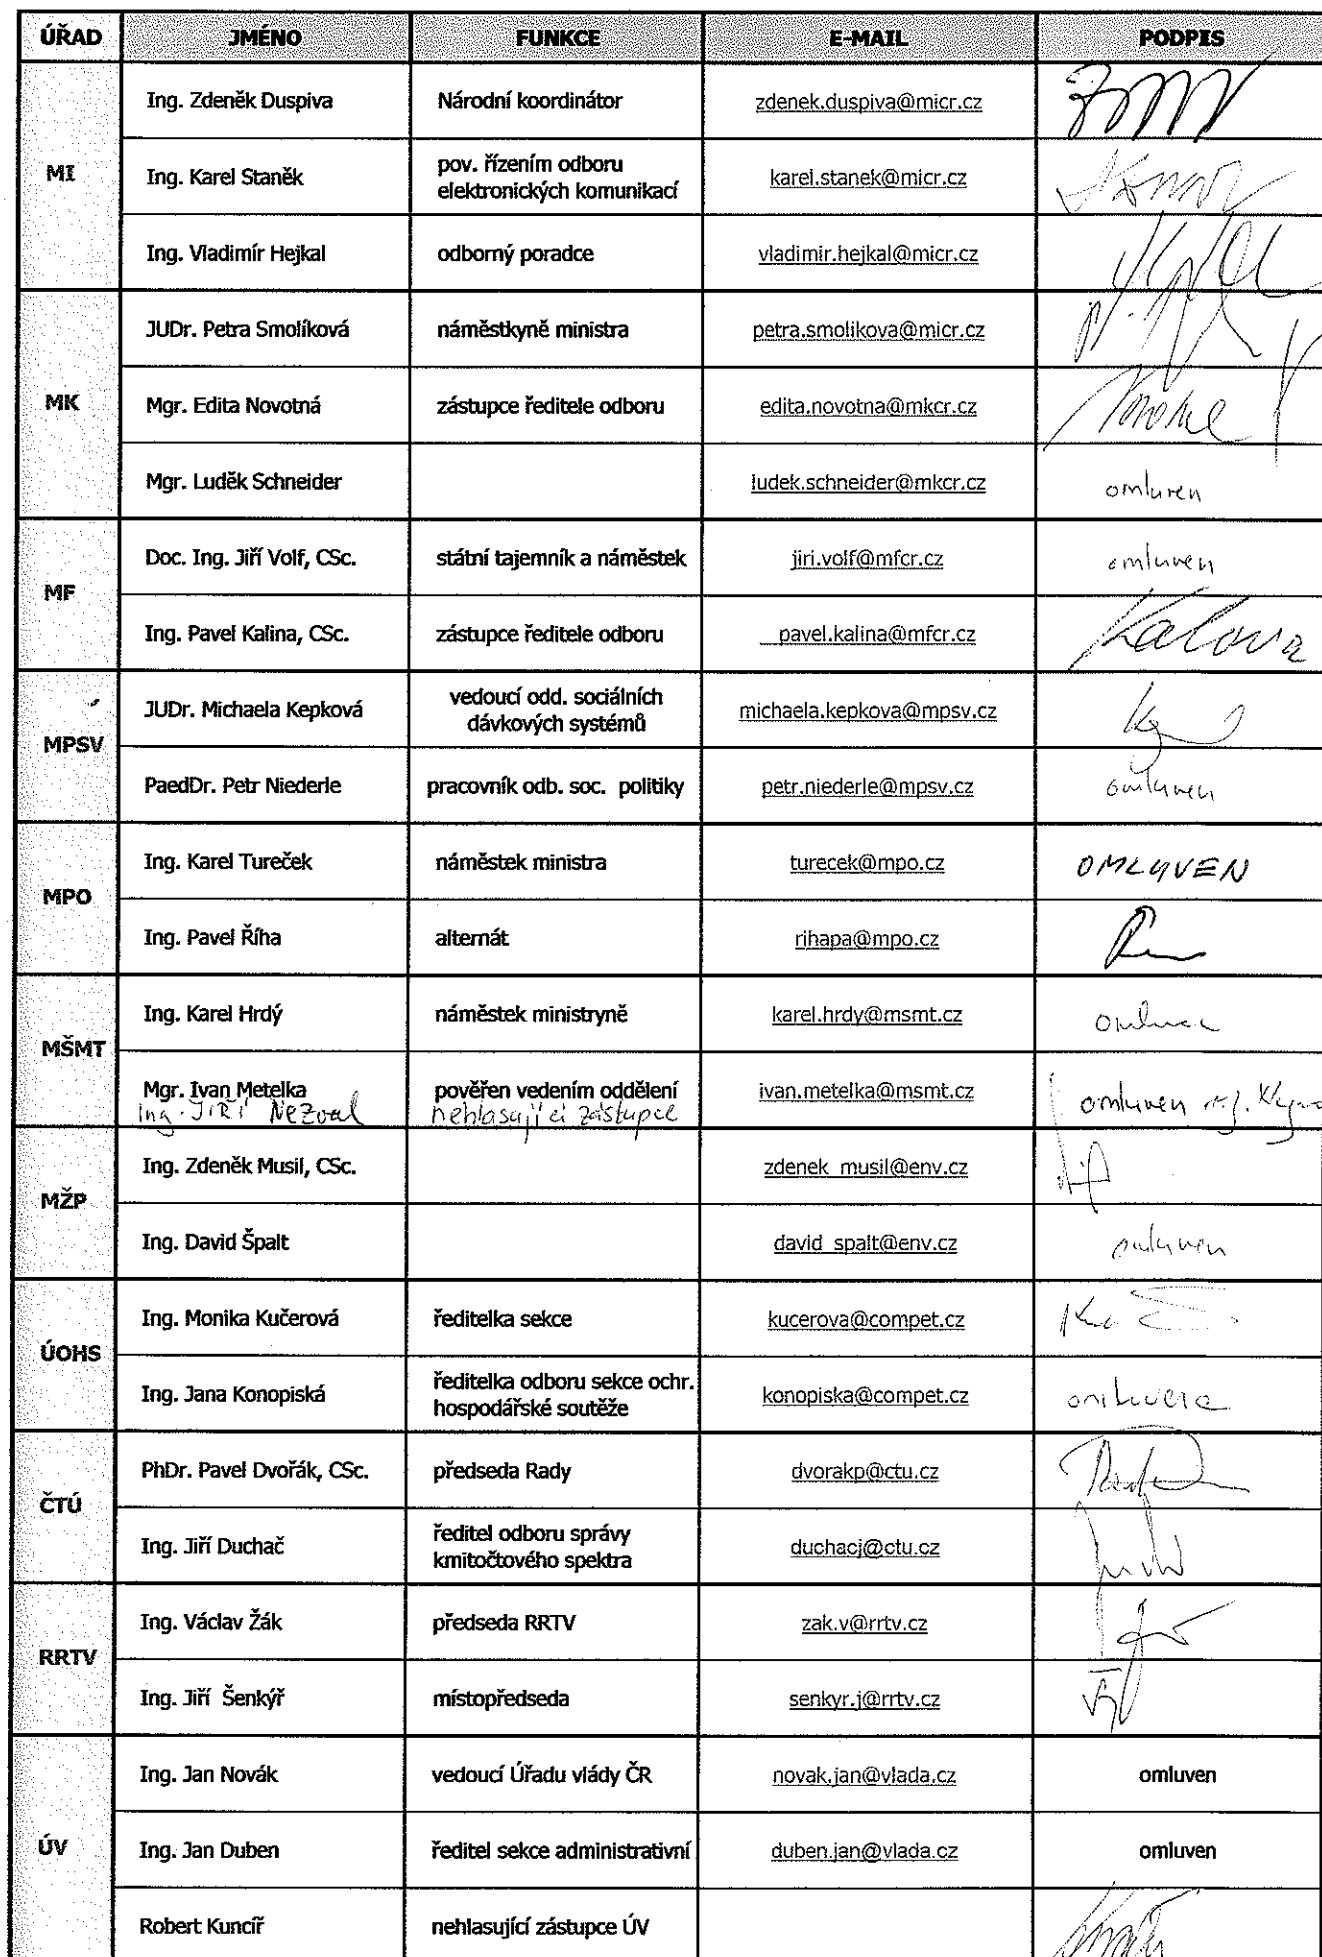 ÚŘAD JMÉNO FUNKCE E-MAIL PODPIS
MI
Ing. Zdeněk Duspiva Národní koordinátor zdenek.duspiva@micr.cz
Ing. Karel Staněk pov. řízením odboru
elektronických komunikací karel.stanek@micr.cz
Ing. Vladimír Hejkal odborný poradce vladimir.hejkal@micr.cz
MK
JUDr. Petra Smolíková náměstkyně ministra petra.smolikova@micr.cz
Mgr. Edita Novotná zástupce ředitele odboru edita.novotna@mkcr.cz
Mgr. Luděk Schneider ludek.schneider@mkcr.cz omluven
MF
Doc. Ing. Jiří Volf, CSc. státní tajemník a náměstek jiri.volf@mfcr.cz omluven
Ing. Pavel Kalina, CSc. zástupce ředitele odboru pavel.kalina@mfcr.cz
MPSV
JUDr. Michaela Kepková vedoucí odd. sociálních
dávkových systémů michaela.kepkova@mpsv.cz
PaedDr. Petr Niederle pracovník odb. soc. politiky petr.niederle@mpsv.cz omluven
MPO
Ing. Karel Tureček náměstek ministra turecek@mpo.cz OMLUVEN
Ing. Pavel Říha alternát rihapa@mpo.cz
MŠMT
Ing. Karel Hrdý náměstek ministryně karel.hrdy@msmt.cz omluven
Mgr. Ivan Metelka pověřen vedením oddělení ivan.metelka@msmt.cz omluven
Ing. JIŘÍ Nezval nehlasující zástupce
MŽP
Ing. Zdeněk Musil, CSc. zdenek_musil@env.cz
Ing. David Špalt david_spalt@env.cz omluven
ÚOHS
Ing. Monika Kučerová ředitelka sekce kucerova@compet.cz
Ing. Jana Konopiská ředitelka odboru sekce ochr.
hospodářské soutěže konopiska@compet.cz omluvena
ČTÚ
PhDr. Pavel Dvořák, CSc. předseda Rady dvorakp@ctu.cz
Ing. Jiří Duchač ředitel odboru správy
kmitočtového spektra duchacj@ctu.cz
RRTV
Ing. Václav Žák předseda RRTV zak.v@rrtv.cz
Ing. Jiří Šenkýř místopředseda senkyr.j@rrtv.cz
ÚV
Ing. Jan Novák vedoucí Úřadu vlády ČR novak.jan@vlada.cz omluven
Ing. Jan Duben ředitel sekce administrativní duben.jan@vlada.cz omluven
Robert Kuncíř nehlasující zástupce ÚV